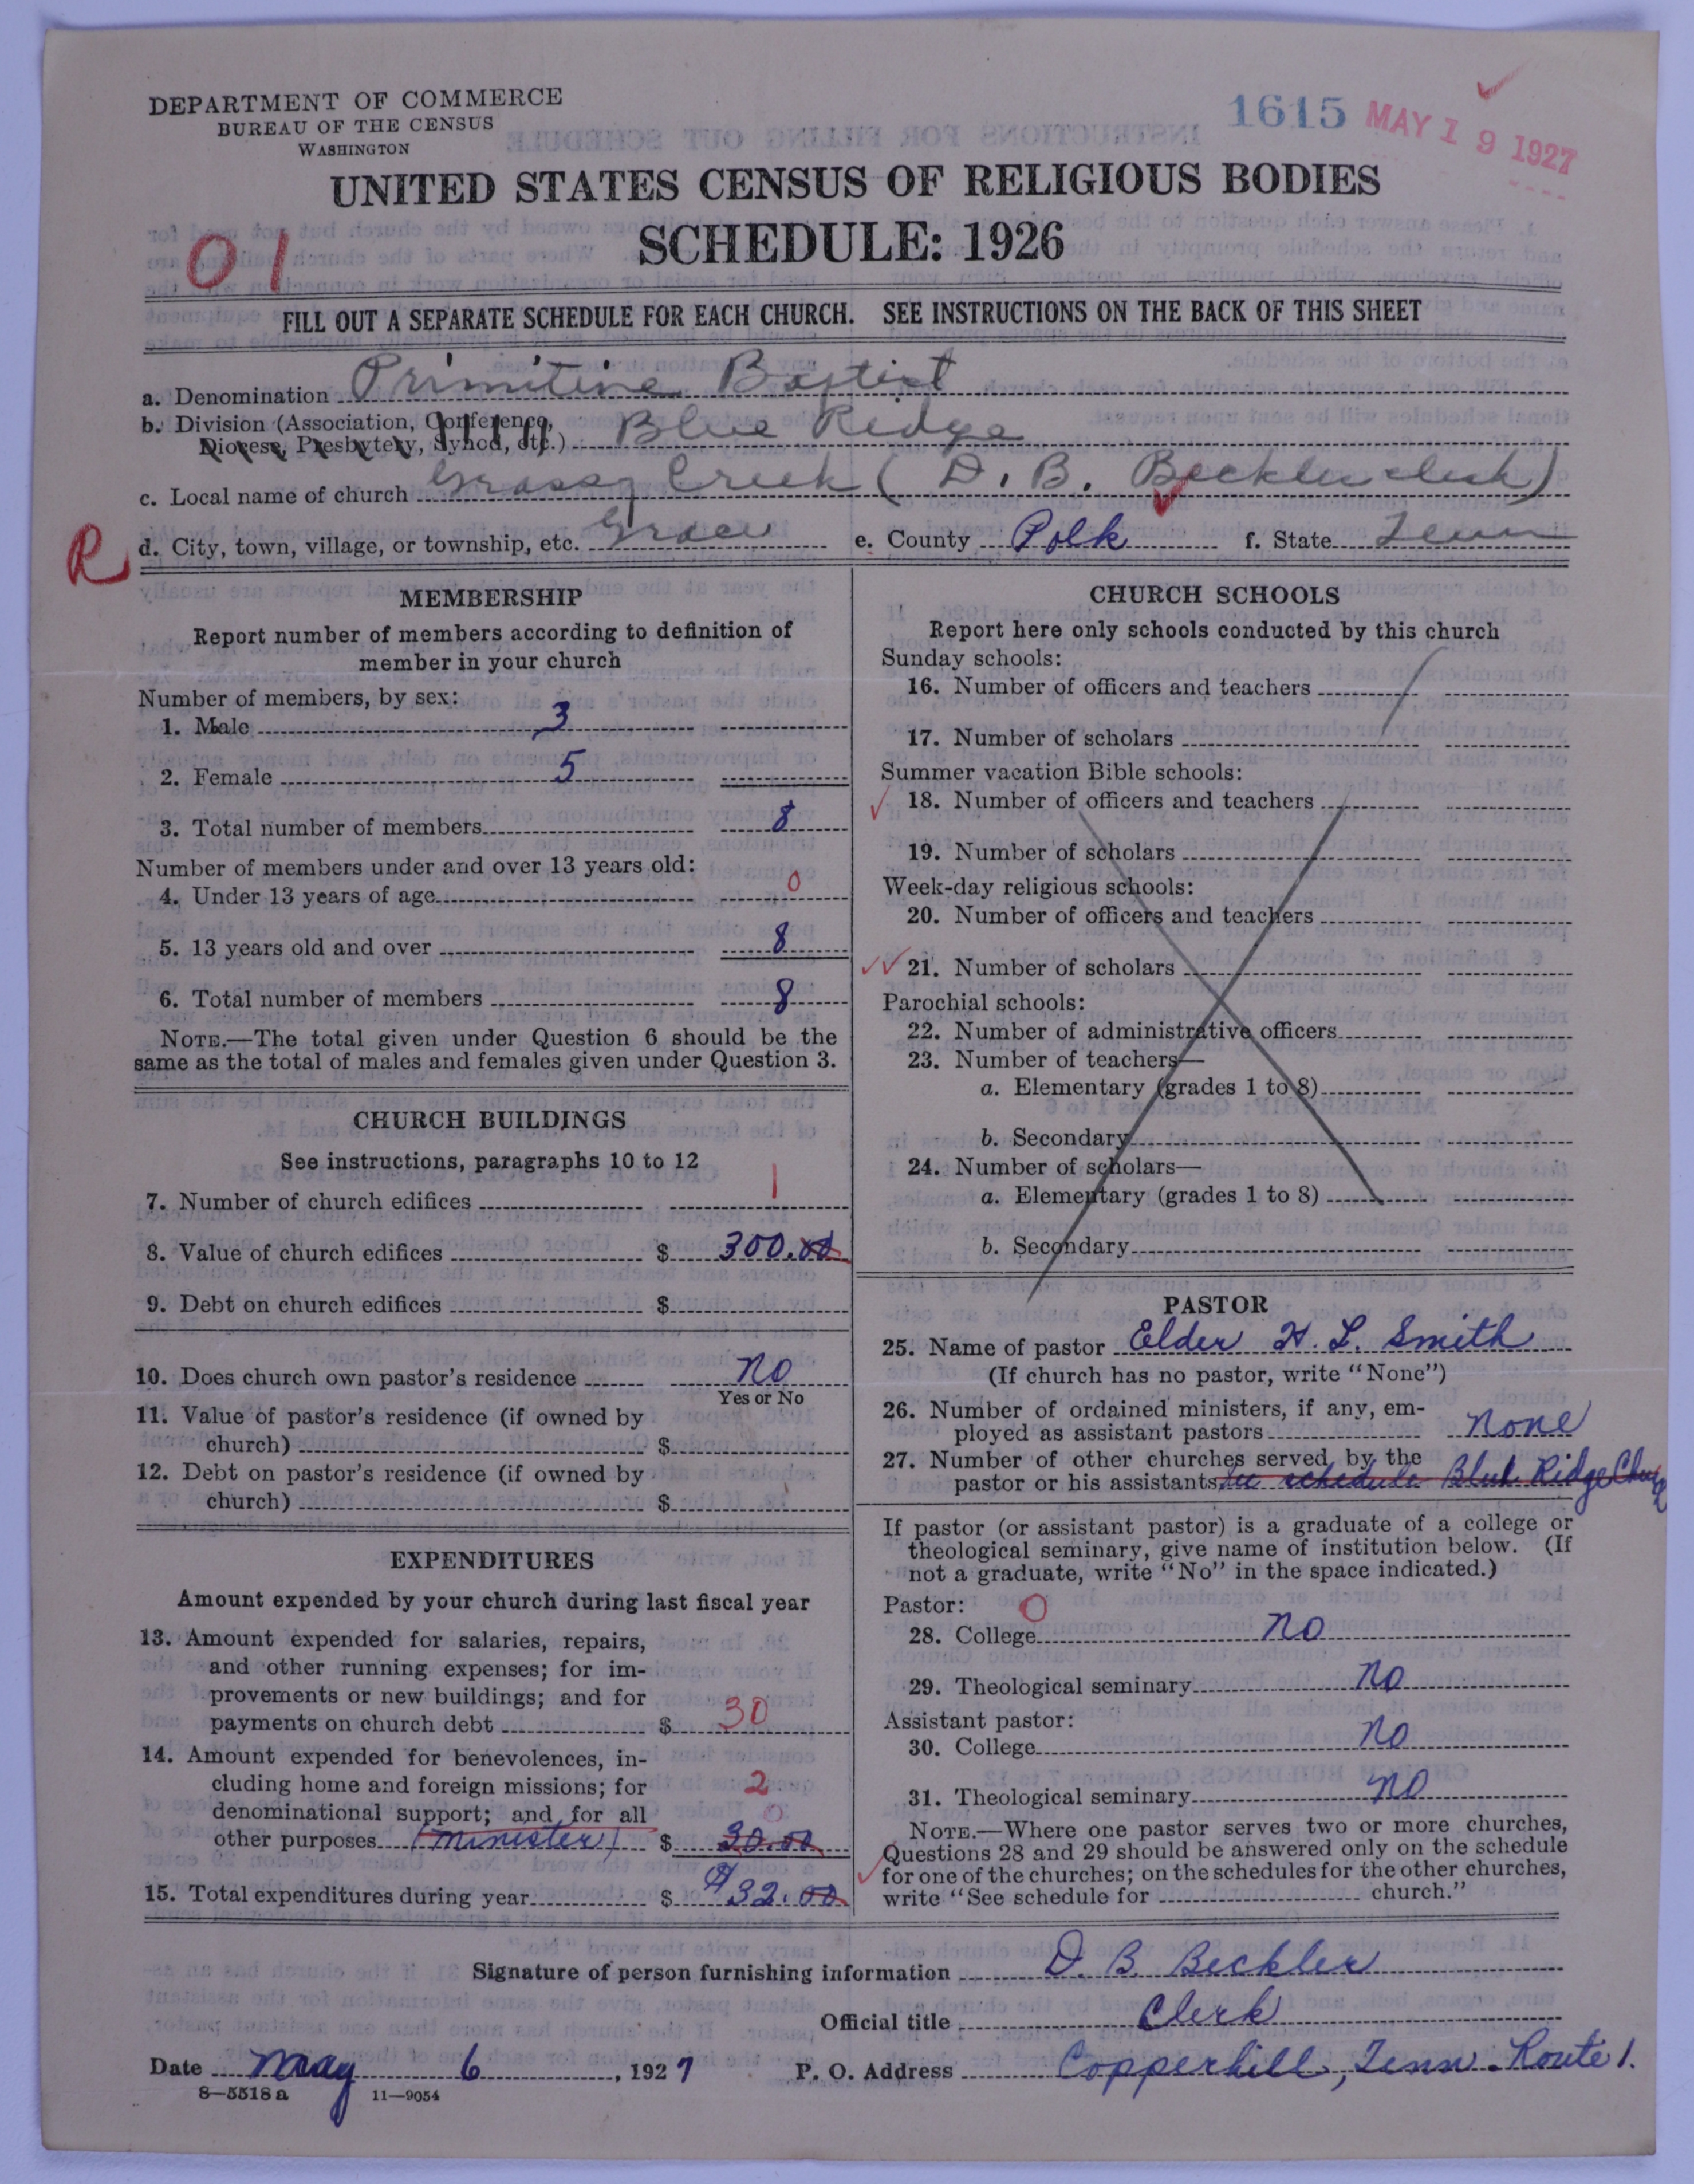 DEPARTMENT OF COMMERCE
BUREAU OF THE CENSUS
WASHINGTON
1615 MAY 19 1927
UNITED STATES CENSUS OF RELIGIOUS BODIES
SCHEDULE: 1926
01
FILL OUT A SEPARATE SCHEDULE FOR EACH CHURCH. SEE INSTRUCTIONS ON THE BACK OF THIS SHEET
a. Denomination Primitive Baptist
b. Division (Association, Conference, Diocese, Presbytery, Synod, etc.) Blue Ridge
c. Local name of church Grassy Creek (D. B. Beckler clerk)
R
d. City, town, village, or township, etc. Grace e. County Polk f. State Tenn
MEMBERSHIP
Report number of members according to definition of
member in your church
Number of members, by sex:
1. Male 3
2. Female 5
3. Total number of members 8
Number of members under and over 13 years old:
4. Under 13 years of age 0
5. 13 years old and over 8
6. Total number of members 8
NOTE.—The total given under Question 6 should be the
same as the total of males and females given under Question 3.
CHURCH BUILDINGS
See instructions, paragraphs 10 to 12
7. Number of church edifices 1
8. Value of church edifices $ 300.00
9. Debt on church edifices $
10. Does church own pastor's residence No
Yes or No
11. Value of pastor's residence (if owned by
church) $
12. Debt on pastor's residence (if owned by
church) $
EXPENDITURES
Amount expended by your church during last fiscal year
13. Amount expended for salaries, repairs,
and other running expenses; for im-
provements or new buildings; and for
payments on church debt $ 30
14. Amount expended for benevolences, in-
cluding home and foreign missions; for 2
denominational support; and for all 0
other purposes (minister) $ 30.00
15. Total expenditures during year $ $32.00
CHURCH SCHOOLS
Report here only schools conducted by this church
Sunday schools:
16. Number of officers and teachers
17. Number of scholars
Summer vacation Bible schools:
18. Number of officers and teachers
19. Number of scholars
Week-day religious schools:
20. Number of officers and teachers
21. Number of scholars
Parochial schools:
22. Number of administrative officers
23. Number of teachers—
a. Elementary (grades 1 to 8)
b. Secondary
24. Number of scholars—
a. Elementary (grades 1 to 8)
b. Secondary
PASTOR
25. Name of pastor Elder H. L. Smith
(If church has no pastor, write "None")
26. Number of ordained ministers, if any, em-
ployed as assistant pastors None
27. Number of other churches served by the
pastor or his assistants see schedule Blue Ridge
If pastor (or assistant pastor) is a graduate of a college or
theological seminary, give name of institution below. (If
not a graduate, write "No" in the space indicated.)
Pastor: 0
28. College No
29. Theological seminary No
Assistant pastor:
30. College No
31. Theological seminary No
NOTE.—Where one pastor serves two or more churches,
Questions 28 and 29 should be answered only on the schedule
for one of the churches; on the schedules for the other churches,
write "See schedule for church."
Signature of person furnishing information D. B Beckler
Official title Clerk
Date May 6, 1927 P. O. Address Copperhill, Tenn. Route 1.
8—5518a 11—9054